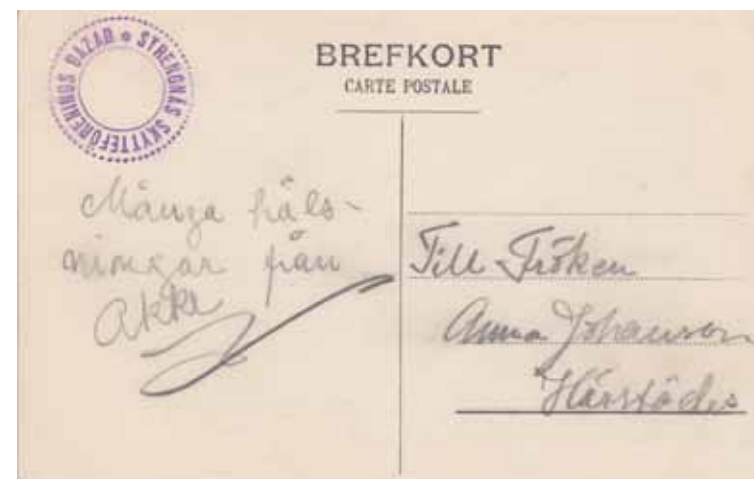 STRENGNÄS SKYTTEFÖRENINGS BAZAR
BREFKORT
CARTE POSTALE
Många häls-
ningar från
Akke
Till Fröken
Anna Johanson
Härstädes